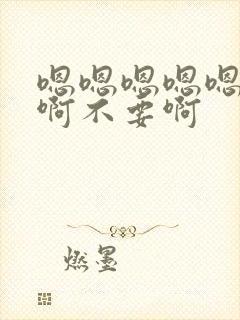 嗯嗯嗯嗯嗯
啊不要啊
燃墨